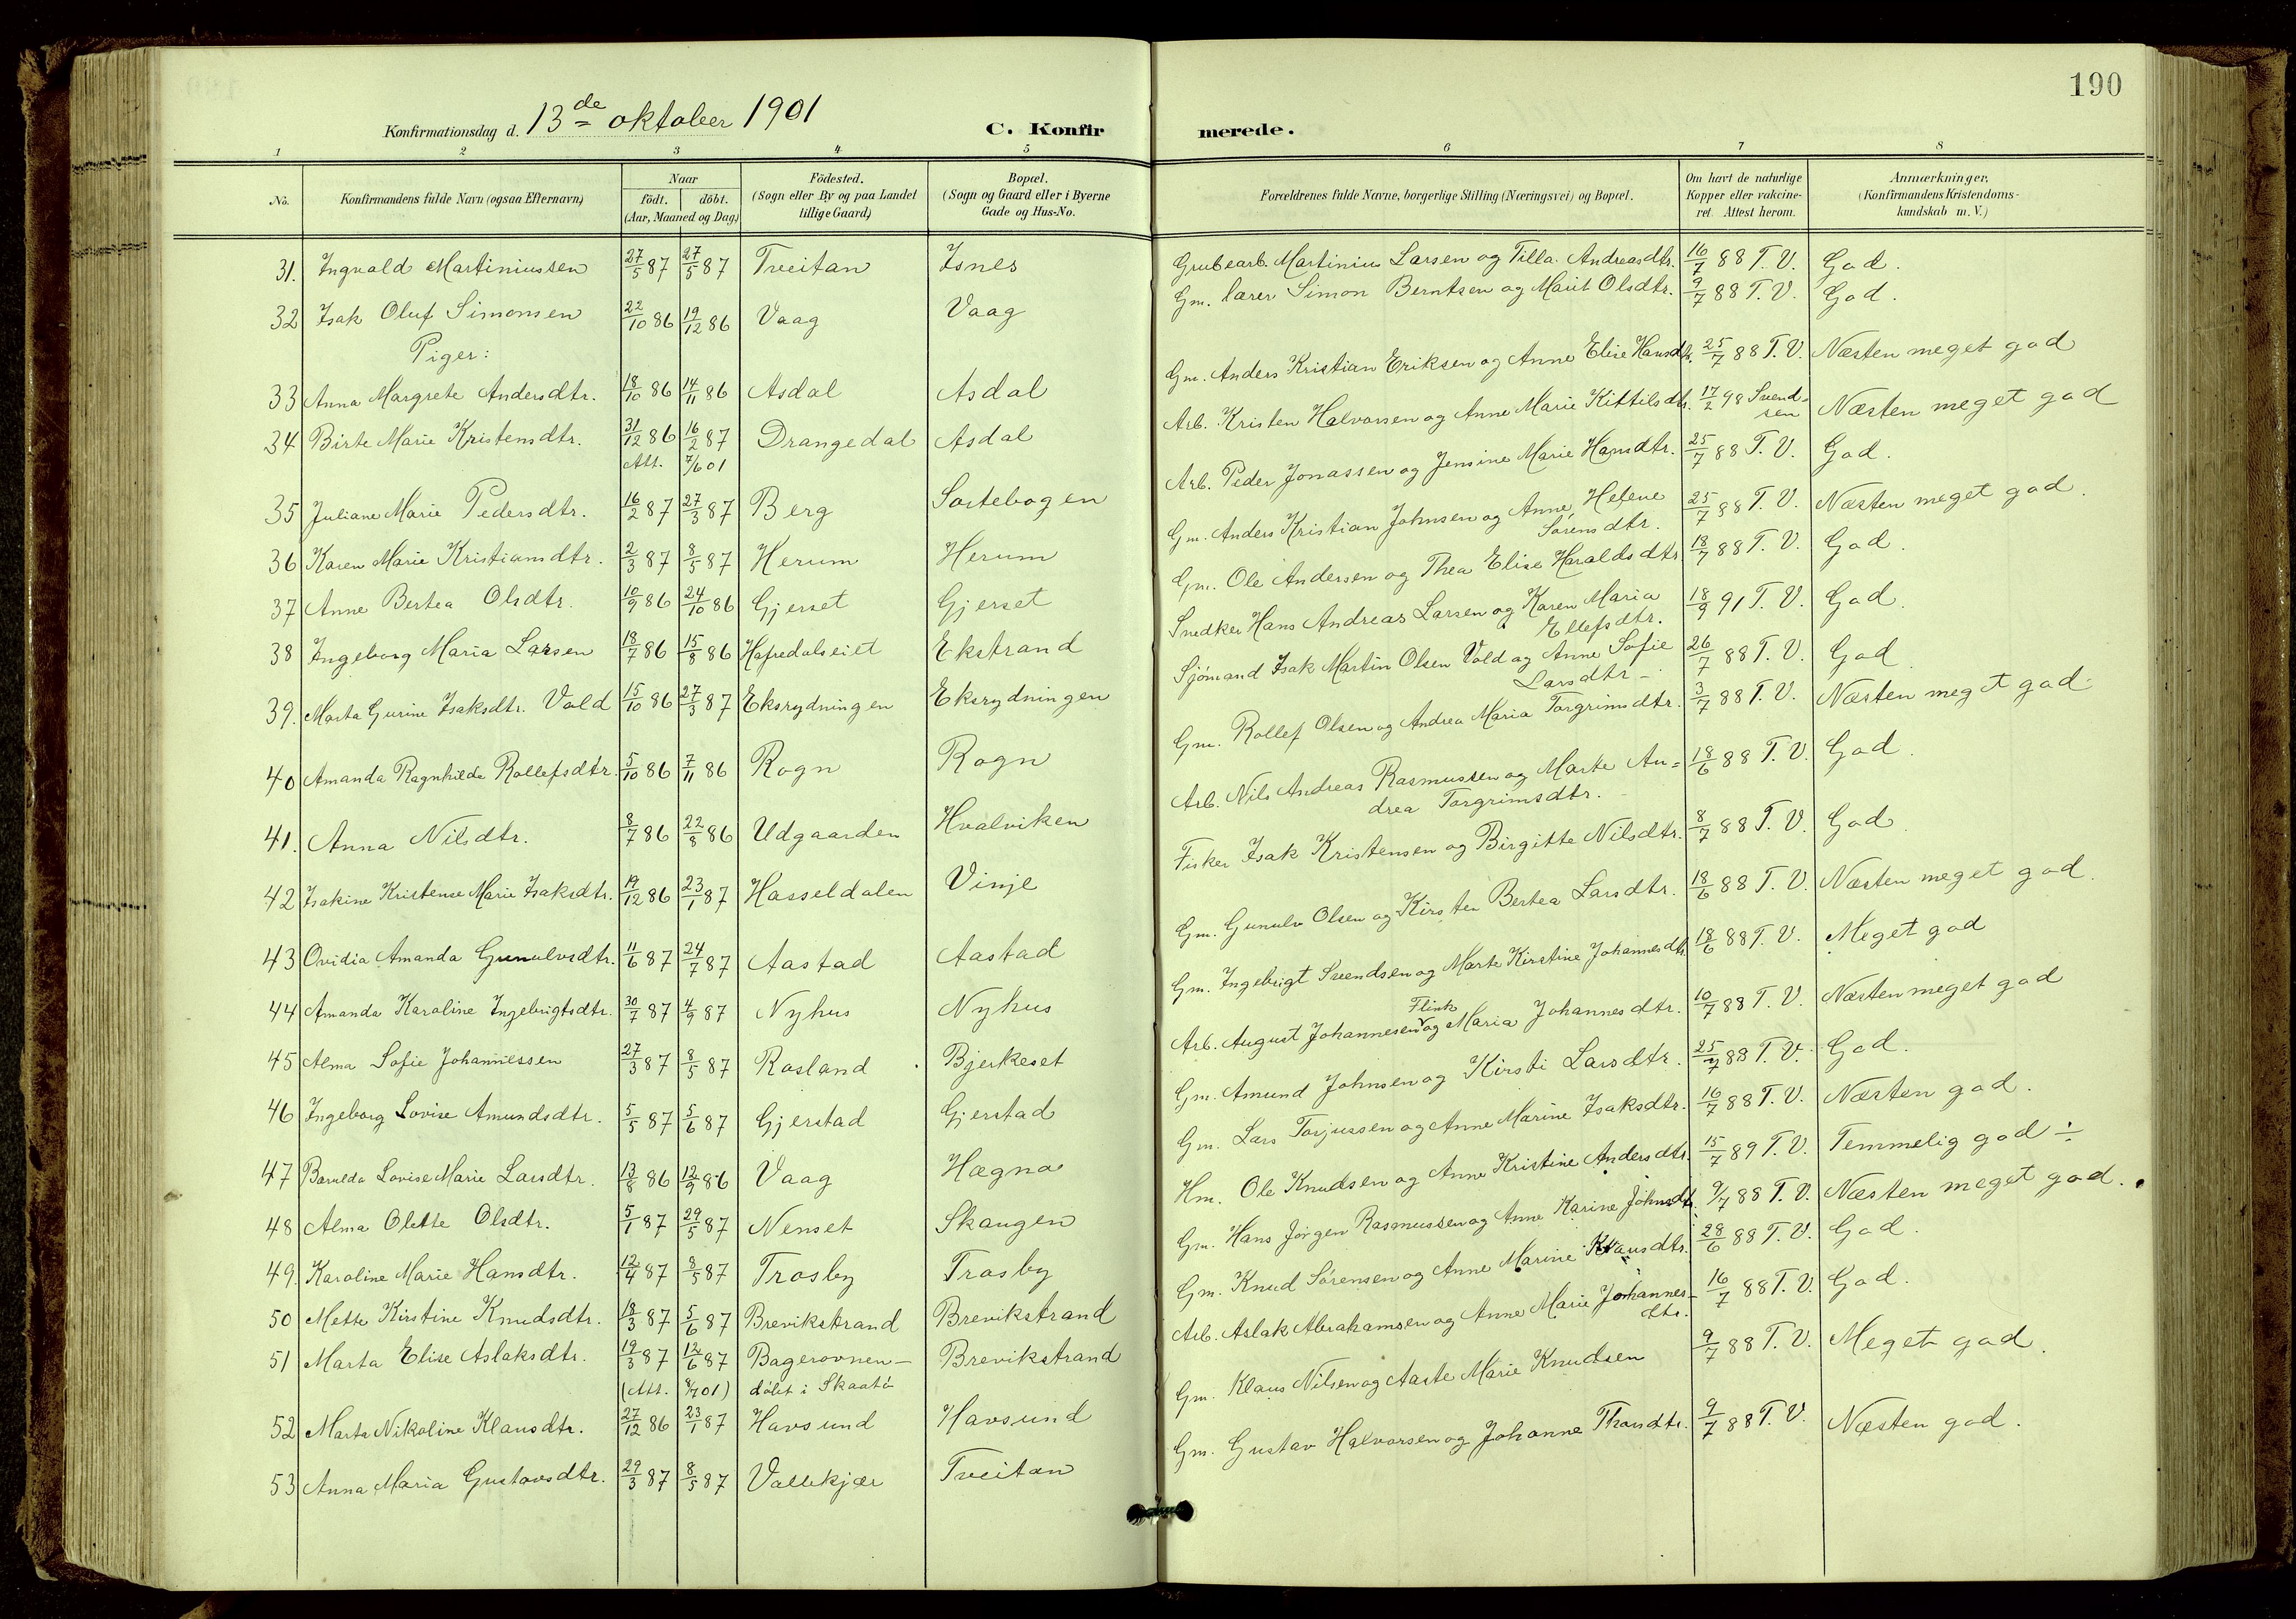 190
Konfirmationsdag d. 13de oktober 1901
C. Konfirmerede.
1 2 3 4 5 6 7 8
No. Konfirmandens fulde Navn (ogsaa Efternavn) Naar födt. döbt. (Aar, Maaned og Dag) Födested. (Sogn eller By og paa Landet tillige Gaard) Bopæl. (Sogn og Gaard eller i Byerne Gade og Hus-No. Forældrenes fulde Navne, borgerlige Stilling (Næringsvei) og Bopæl. Om havt de naturlige Kopper eller vakcineret. Attest herom. Anmærkninger. (Konfirmandens Kristendomskundskab m. V.)
31. Ingvald Martiniussen 27/5 87 27/5 87 Tveitan Isnes Grubearb. Martinius Larsen og Tilla Andreasdtr. 16/7 88 T. V. God.
32 Isak Oluf Simonsen 22/10 86 19/12 86 Vaag Vaag Gm. lærer Simon Berntsen og Marit Olsdtr. 9/7 88 T. V. God.
Piger:
33 Anna Margrete Andersdtr. 18/10 86 14/11 86 Asdal Asdal Gm. Anders Kristian Eriksen og Anne Elise Hansdtr. 25/7 88 T. V. Næsten meget god
34 Birte Marie Kristensdtr. 31/12 86 16/2 87 Drangedal Asdal Arb. Kristen Halvorsen og Anne Marie Kittilsdtr. 17/2 98 Svendsen Næsten meget god
Att. 7/6 01
35 Juliane Marie Pedersdtr. 16/2 87 27/3 87 Berg Sortebogen Arb. Peder Jonassen og Jensine Marie Hansdtr. 25/7 88 T. V. God.
36 Karen Marie Kristiansdtr. 2/3 87 8/5 87 Herum Herum Gm. Anders Kristian Johnsen og Anne Helene Sørensdtr. 25/7 88 T. V. Næsten meget god.
37 Anne Bertea Olsdtr. 10/9 86 24/10 86 Gjerset Gjerset Gm. Ole Andersen og Thea Elise Haraldsdtr. 18/7 88 T. V. God.
38 Ingeborg Maria Larsen 18/7 86 15/8 86 Hafredalseiet Ekstrand Snedker Hans Andreas Larsen og Karen Maria Ellefsdtr. 18/9 91 T. V. God.
39. Marta Gurine Isaksdtr. Vold 15/10 86 27/3 87 Eksrydningen Eksrydningen Sjømand Isak Martin Olsen Vold og Anne Sofie Larsdtr - 26/7 88 T. V. God.
40 Amanda Ragnhilda Rollefsdtr. 5/10 86 7/11 86 Rogn Rogn Gm. Rollef Olsen og Andrea Maria Torgrimsdtr. 3/7 88 T. V. Næsten meget god.
41. Anna Nilsdtr. 8/7 86 22/8 86 Udgaarden Hvalviken Arb. Nils Andreas Rasmussen og Marte Andrea Torgrimsdtr. 18/6 88 T. V. God.
42 Isakine Kristense Marie Isaksdtr. 19/12 86 23/1 87 Hasseldalen Vinje Fisker Isak Kristensen og Birgitte Nilsdtr. 8/7 88 T. V. God.
43 Ovidia Amanda Gunulvsdtr. 11/6 87 24/7 87 Aastad Aastad Gm. Gunulv Olsen og Kirsten Bertea Larsdtr. 18/6 88 T. V. Næsten meget god.
44 Amanda Karoline Ingebrigtsdtr. 30/7 87 4/9 87 Nyhus Nyhus Gm. Ingebrigt Svendsen og Marte Kirstine Johannesdtr. 18/6 88 T. V. Meget god
45 Alma Sofie Johannessen 27/3 87 8/5 87 Rosland Bjerkeset Arb. August Johannesen Flink og Maria Johannesdtr. 10/7 88 T. V. Næsten meget god
46 Ingeborg Lovise Amundsdtr. 5/5 87 5/6 87 Gjerstad Gjerstad Gm. Amund Johnsen og Kirsti Larsdtr. 25/7 88 T. V. God.
47 Lovise Marie Larsdtr. 13/8 86 12/9 86 Vaag Hægna Gm. Lars Torjussen og Anne Marine Isaksdtr. 16/7 88 T. V. Næsten god.
48 Alma Olette Olsdtr. 5/1 87 29/5 87 Nenset Skaugen Hm. Ole Knudsen og Anne Kristine Andersdtr. 15/7 89 T. V. Temmelig god ÷
49. Karoline Marie Hansdtr. 12/4 87 8/5 87 Trosby Trosby Gm. Hans Jørgen Rasmussen og Anne Karine Johnsdtr. 9/7 88 T. V. Næsten meget god.
50 Mette Kirstine Knudsdtr. 18/3 87 5/6 87 Brevikstrand Brevikstrand Gm. Knud Sørensen og Anne Marine Klausdtr. 28/6 88 T. V. God.
51 Marta Elise Aslaksdtr. 19/3 87 12/6 87 Bagerovnen - Brevikstrand Arb. Aslak Abrahamsen og Anne Marie Johannesdtr. 16/7 88 T. V. God.
(Att. 8/7 01) døbt i Skaatø
52 Marta Nikoline Klausdtr. 27/12 86 23/1 87 Havsund Havsund Gm. Klaus Nilsen og Aaste Marie Knudsen 9/7 88 T. V. Meget god.
53 Anna Maria Gustavsdtr. 29/3 87 8/5 87 Vallekjær Tveitan Gm. Gustav Halvorsen og Johanne Thorsdtr. 9/7 88 T. V. Næsten god.